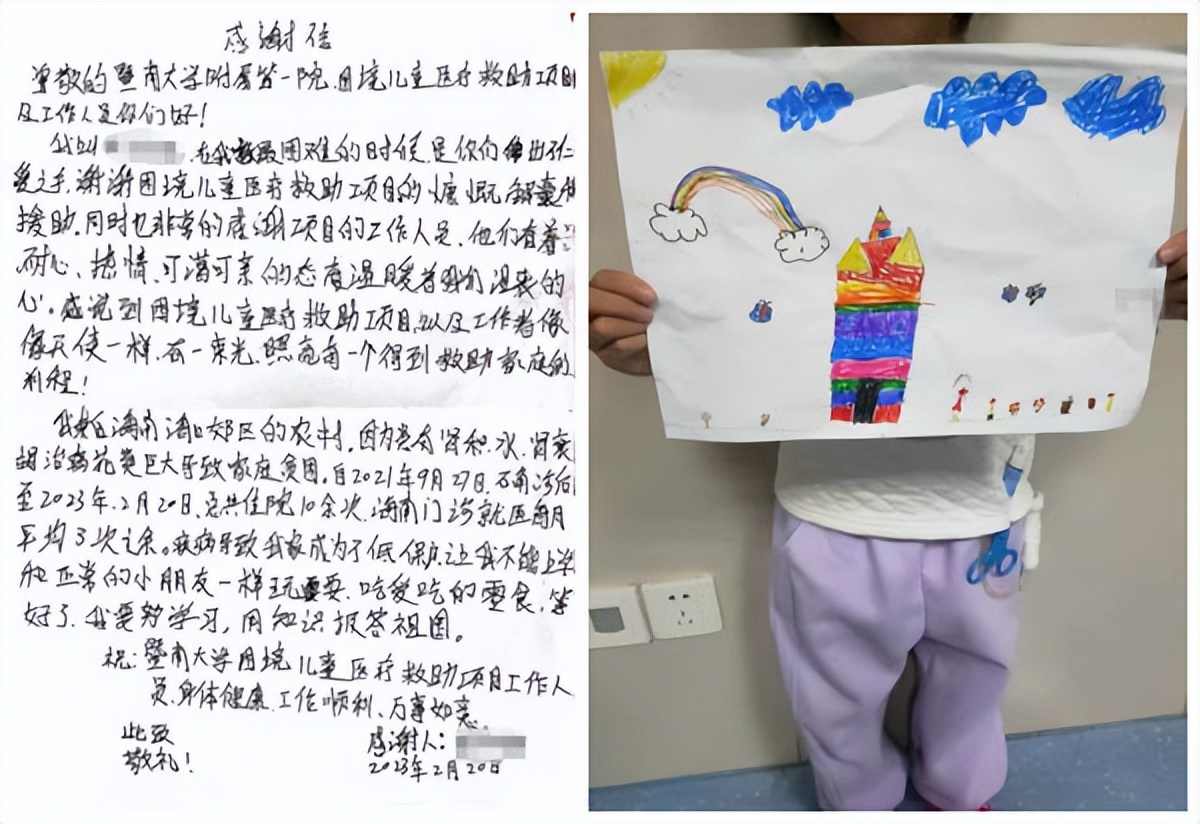 感谢信
尊敬的暨南大学附属第一院.困境儿童医疗救助项目
及工作人员你们好!
我叫 .在我最困难的时候.是你们伸出仁
爱之手.谢谢困境儿童医疗救助项目的慷慨.解囊
援助.同时也非常的感谢项目的工作人员.他们有着
耐心、热情、可蔼可亲的态度温暖着我们
心.感觉到困境儿童医疗救助项目以及工作者像
像天使一样.有一束光.照亮每一个得到救助家庭的
利程!
我来自海南海口郊区的农村.因为患有肾积水.肾衰
治病花费巨大导致家庭贫困.自2021年9月27日.
至2023年.2月20日.总共住院10余次.海南门诊就医每月
平均3次之余。疾病导致我家成为了低保户.让我不能上学
和正常的小朋友一样玩耍、吃爱吃的零食.等
好了.我要努学习,用知识报答祖国。
祝:暨南大学困境儿童医疗救助项目工作人
员.身体健康.工作顺利、万事如意。
此致
敬礼!
感谢人:
2023年2月20日